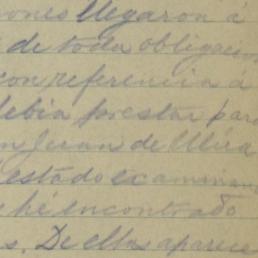 ones llegaron á
de toda obligacion
con referencia á
debia prestar para
n Juan de Ulúa
estado examinan
e hé encontrado
s. De ellas aparece